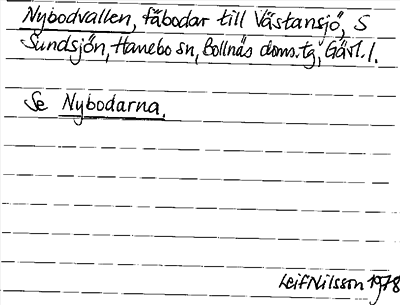 Nybodvallen, fäbodar till Västansjö, S
Sundsjön, Hanebo sn, Bollnäs doms.tg, Gävl. l.
Se Nybodarna.
Leif Nilsson 1978